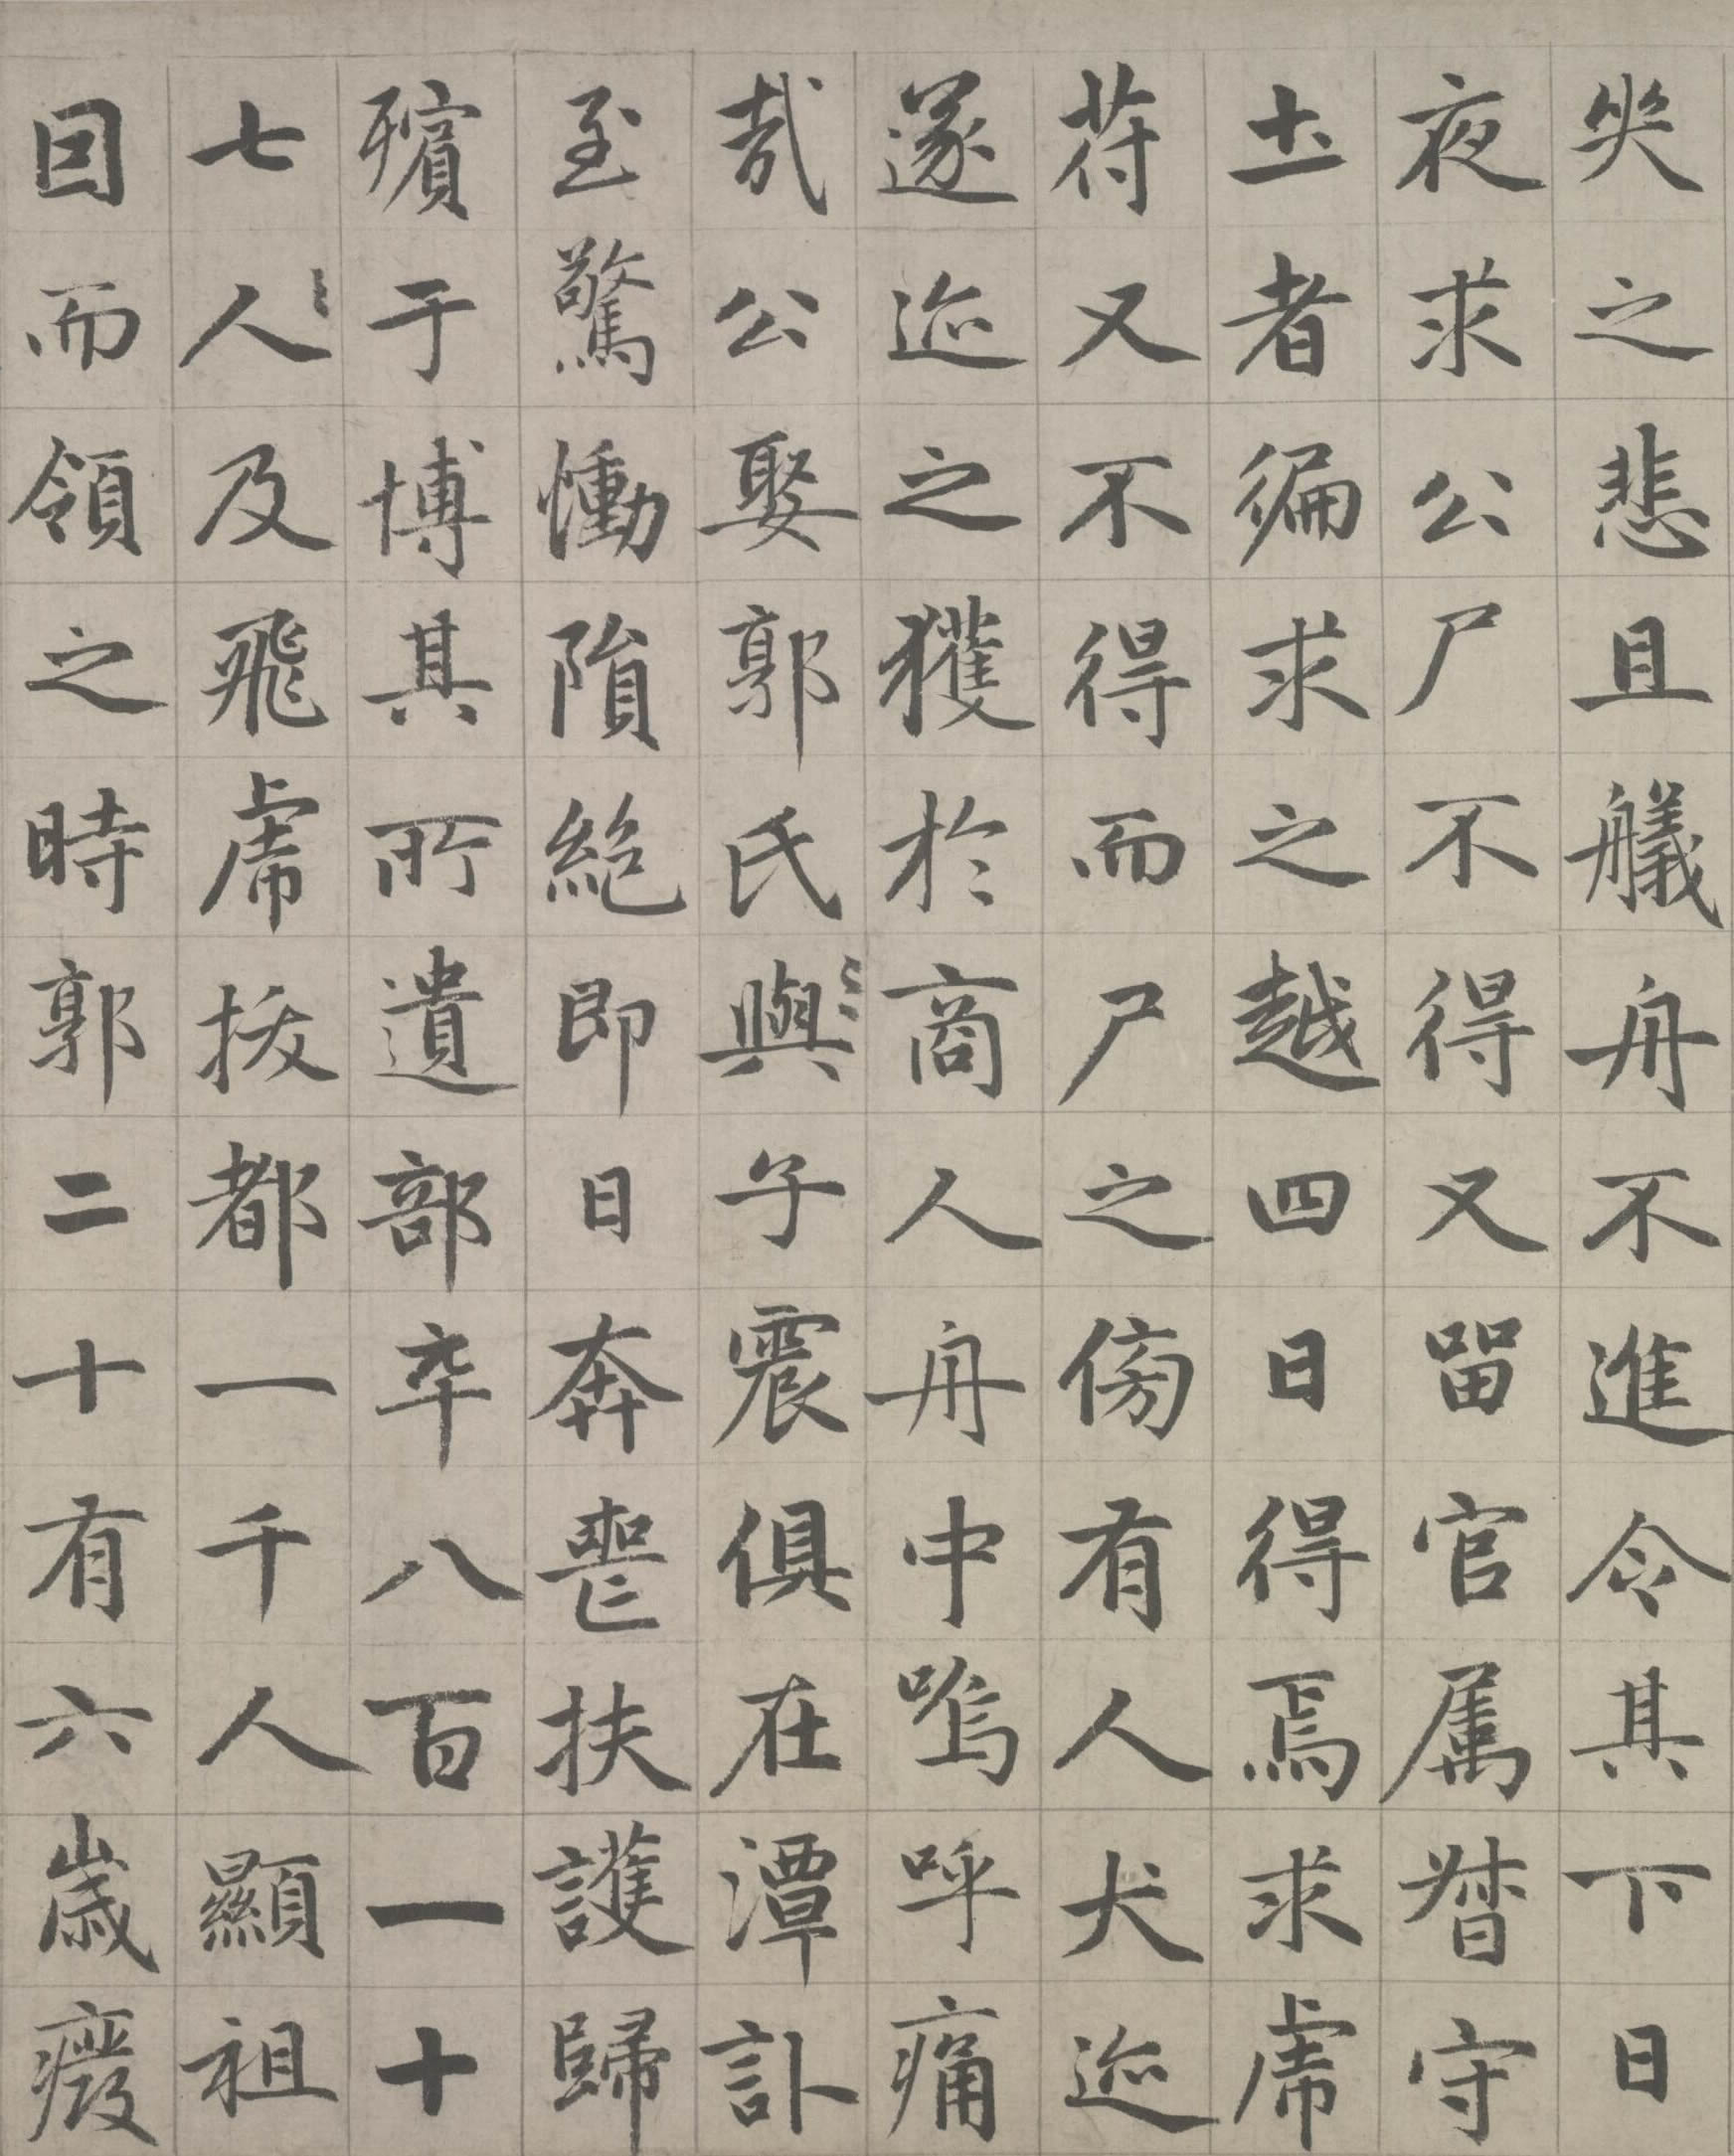 哭之悲且艤舟不進令其下日
夜求公尸不得又留官属督守
士者徧求之越四日得焉求虎
苻又不得而尸之傍有人犬迹
遂迹之獲於商人舟中嗚呼痛
哉公娶郭氏與子震俱在潭訃
至驚慟隕絕即日奔喪扶護歸
殯于博其所遺部卒八百一十
七人及飛虎拔都一千人顯祖
回而領之時郭二十有六歲癈